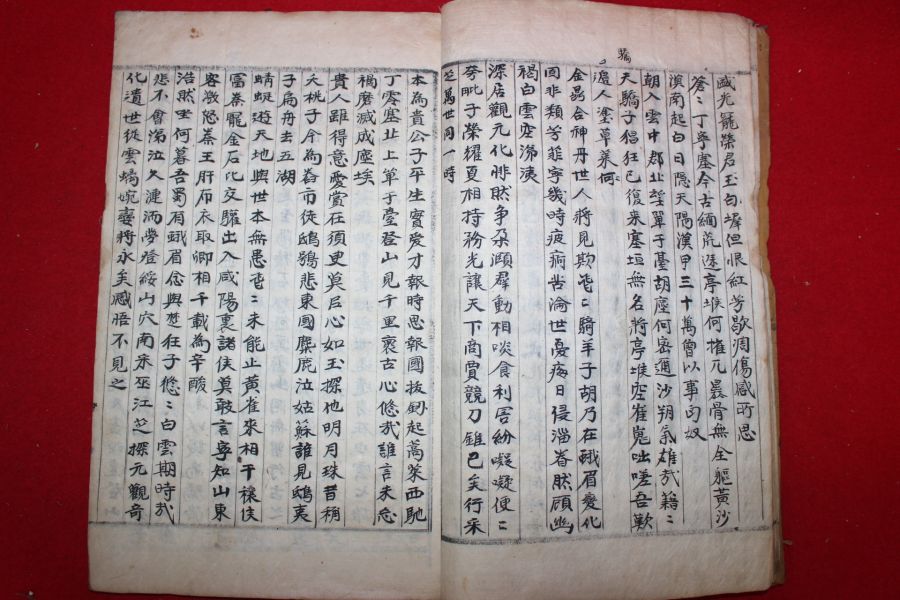 盛光寵榮君玉匆墀但恨紅芳歇凋傷感所思
蒼〻丁寧塞今古緬荒途亭堠何摧兀暴骨無全軀黃沙
漠南起白日隱天隅漢甲三十萬曾以事匈奴
驕
朝入雲中郡北望單于臺胡座何密邇沙朔氣雄哉籍〻
天驕子猖狂已復來塞垣無名將亭堠空崔嵬咄嗟吾歎
邊人塗草萊何
金鼎合神丹世人將見欺飛〻騎羊子胡乃在峨眉變化
固非類芳菲寧幾時疲痾苦淪世憂痗日侵淄眷然顧幽
褐白雲空涕洟
深居觀元化悱然爭朵頤群動相啖食利害紛㘈㘈便〻
夸毗子榮耀更相持務光讓天下商賈競刀錐已矣行采
芝萬世同一時
本為貴公子平生實愛才報時思報國拔劍起蒿萊西馳
丁零塞北上單于臺登山見千里裹古心悠哉誰言未忘
禍磨滅成塵埃
貴人難得意愛賞在須臾莫以心如玉探他明月珠昔稱
夭桃子今為舂市徒鴟鴞悲東國麋鹿泣姑蘇誰見鴟夷
子扁舟去五湖
蜻蜓遊天地與世本無患飛〻未能止黃雀來相干穰侯
富秦寵金石比交驩出入咸陽裏諸侯莫敢言寧知山東
客激怒秦王肝布衣取卿相千載為辛酸
浩然坐何暮吾蜀有峨眉念與楚狂子悠〻白雲期時哉
悲不會涕泣久漣洏夢登綏山穴南采巫江芝探元觀奇
化遺世從雲螭婉孌將永矣感悟不見之